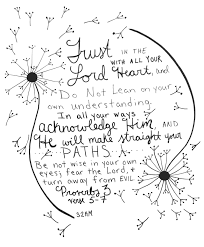 Trust IN THE
WITH ALL YOUR
Lord Heart, and
Do Not Lean on your
own understanding.
In all your ways
acknowledge Him AND
He will make straight your
PATHS.
Be not wise in your own
eyes; fear the Lord, &
turn away from EVIL.
Proverbs 3
verse 5-7